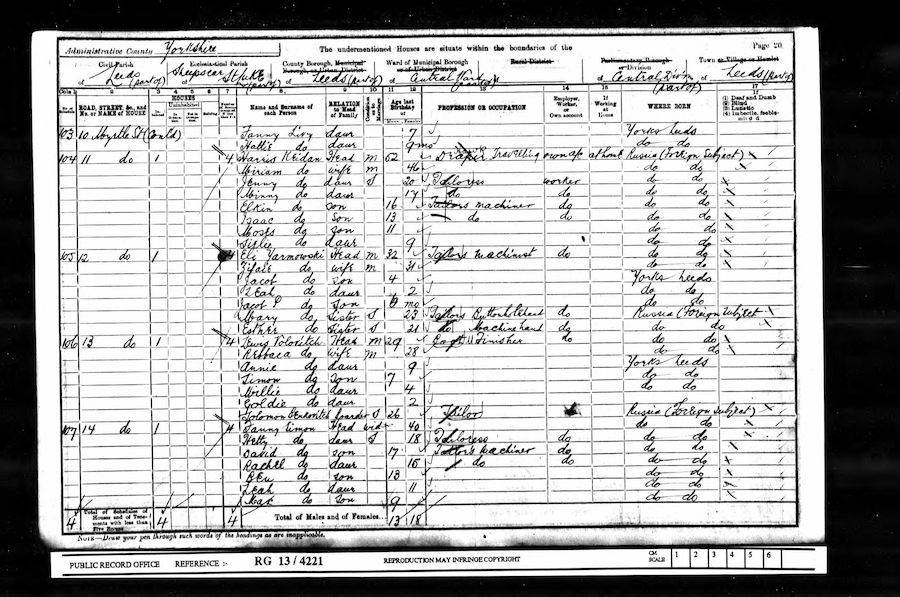 Administrative County Yorkshire The undermentioned Houses are situate within the boundaries of the Page 20
Civil Parish Ecclesiastical Parish County Borough, Municipal Borough, or Urban District Ward of Municipal Borough or of Urban District Rural District Parliamentary Borough or Division Town or Village or Hamlet
of Leeds (part of) of Sheepscar St Luke (part of) of Leeds (part of) of Central Ward of of Central Div (part of) of Leeds (part of)
ROAD, STREET, &c., and No. or NAME of HOUSE HOUSES Name and Surname of each Person RELATION to Head of Family Condition as to Marriage Age last Birthday of PROFESSION OR OCCUPATION Employer, Worker, or Own account If Working at Home WHERE BORN (1) Deaf and Dumb (2) Blind (3) Lunatic (4) Imbecile, feeble-minded
103 10 Myrtle St (Contd) Fanny Levy daur 7 Yorks Leeds
Hattie do daur 9 mo do do
104 11 do 1 4 Harris Keidan Head M 52 Draper Travelling own a/c at home Russia (Foreign Subject)
Miriam do wife M 46 do do
Jenny do daur S 20 Tailoress worker do do
Minny do daur 17 do do do do
Elkin do son 16 Tailors machiner do do do
Isaac do son 13 do do do do
Moses do son 11 do do
do daur 9 do do
105 12 do 1 4 Eli Yarmowski Head M 32 Tailors machinist do do do
do wife M 31 do do
Jacob do son 4 Yorks Leeds
Leah do daur 2 do do
Jacob do son mo do do
Mary do Sister S 23 Tailors Buttonhole hand do Russia (Foreign Subject)
Esther do Sister S 21 do Machine hand do do do
106 13 do 1 4 Lewis Polovitch Head M 29 Finisher do do do
Rebbeca do wife M 28 do do
Annie do daur 9 Yorks Leeds
Simon do son 7 do do
Millie do daur 4 do do
Goldie do daur 2
Solomon boarder S 26 Tailor Russia (Foreign Subject)
107 14 do 1 4 Fanny Simon Head wid 40 do do
Hetty do daur S 18 Tailoress do do do
David do son 17 Tailor's machiner do do do
Rachel do daur 15 do do do do
Ben do son 13 do do
Leah do daur 11 do do
do son 9 do do
4 Total of Schedules of Houses and of Tenements with less than Five Rooms 4 4 Total of Males and of Females 13 18
NOTE—Draw your pen through such words of the headings as are inapplicable.
PUBLIC RECORD OFFICE REFERENCE :- RG 13/4221 REPRODUCTION MAY INFRINGE COPYRIGHT CM SCALE 1 2 3 4 5 6